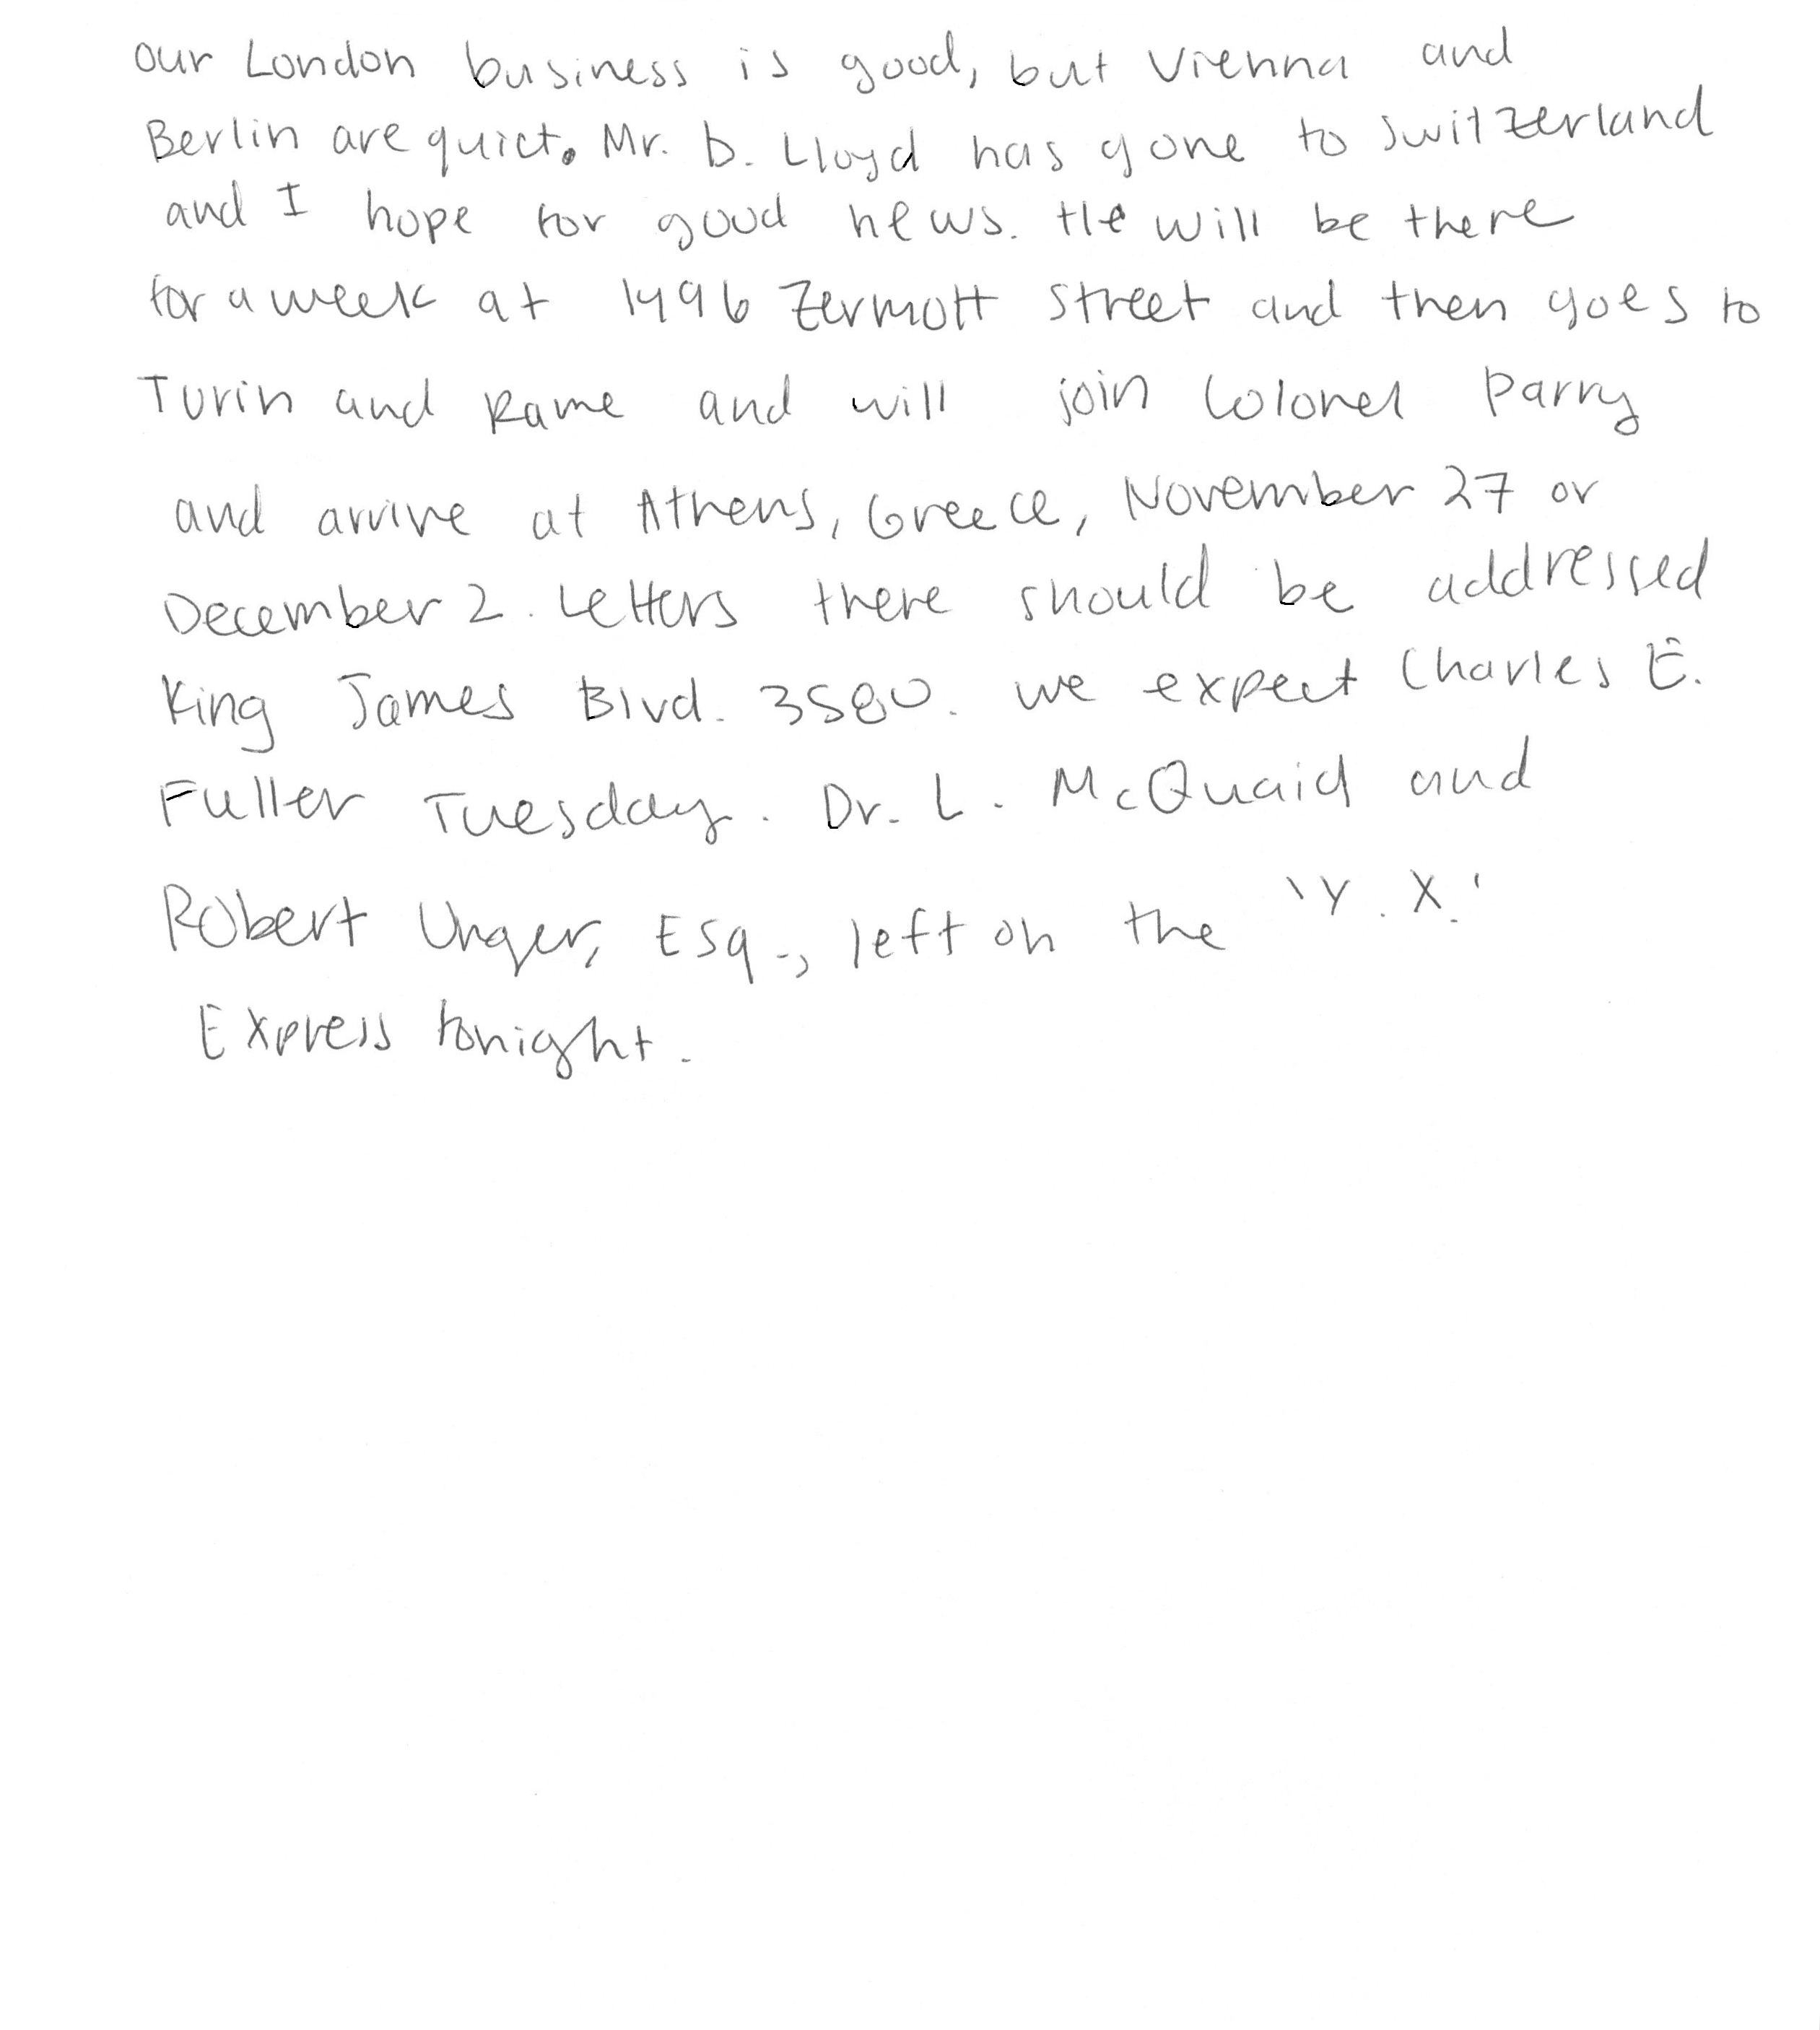 our London business is good, but Vienna and
Berlin are quiet. Mr. D. Lloyd has gone to switzerland
and I hope for good news. He will be there
for a week at 1496 Zermott street and then goes to
Turin and Rame and will join Colonel Parry
and arrive at Athens, Greece, November 27 or
December 2. Letters there should be addressed
King James Blvd. 3580. we expect Charles E.
Fuller Tuesday. Dr. L. McQuaid and
Robert Unger, Esq., left on the 'Y. X.'
Express tonight.